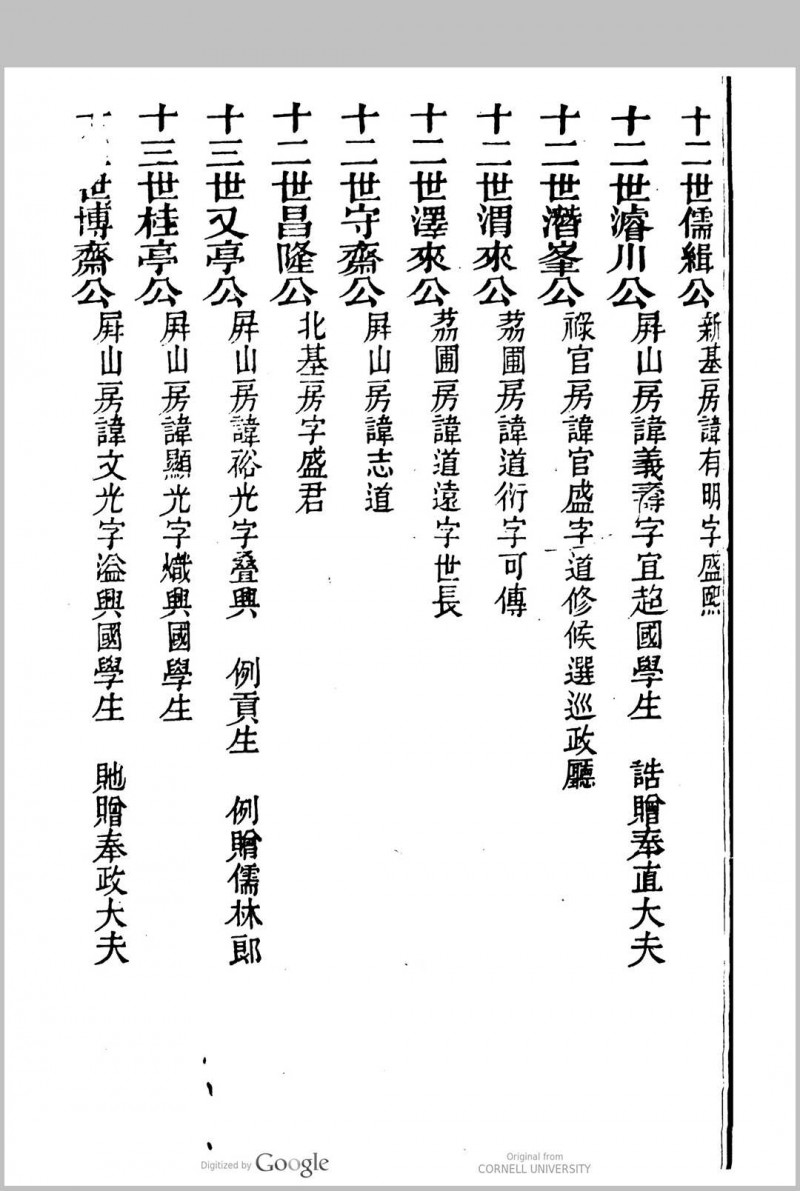 十二世儒緝公 新基房諱有明字盛熙
十二世濬川公 屛山房諱義壽字宜超國學生 誥贈奉直大夫
十二世濳峯公 祿官房諱官盛字道修候選巡政廳
十二世渭來公 荔圃房諱道衍字可傳
十二世澤來公 荔圃房諱道遠字世長
十二世守齋公 屛山房諱志道
十二世昌隆公 北基房字盛君
十三世又亭公 屛山房諱裕光字叠興 例貢生 例贈儒林郎
十三世桂亭公 屛山房諱顯光字熾興國學生
世博齋公 屛山房諱文光字溢興國學生 貤贈奉政大夫
Digitized by Google
Original from
CORNELL UNIVERSITY